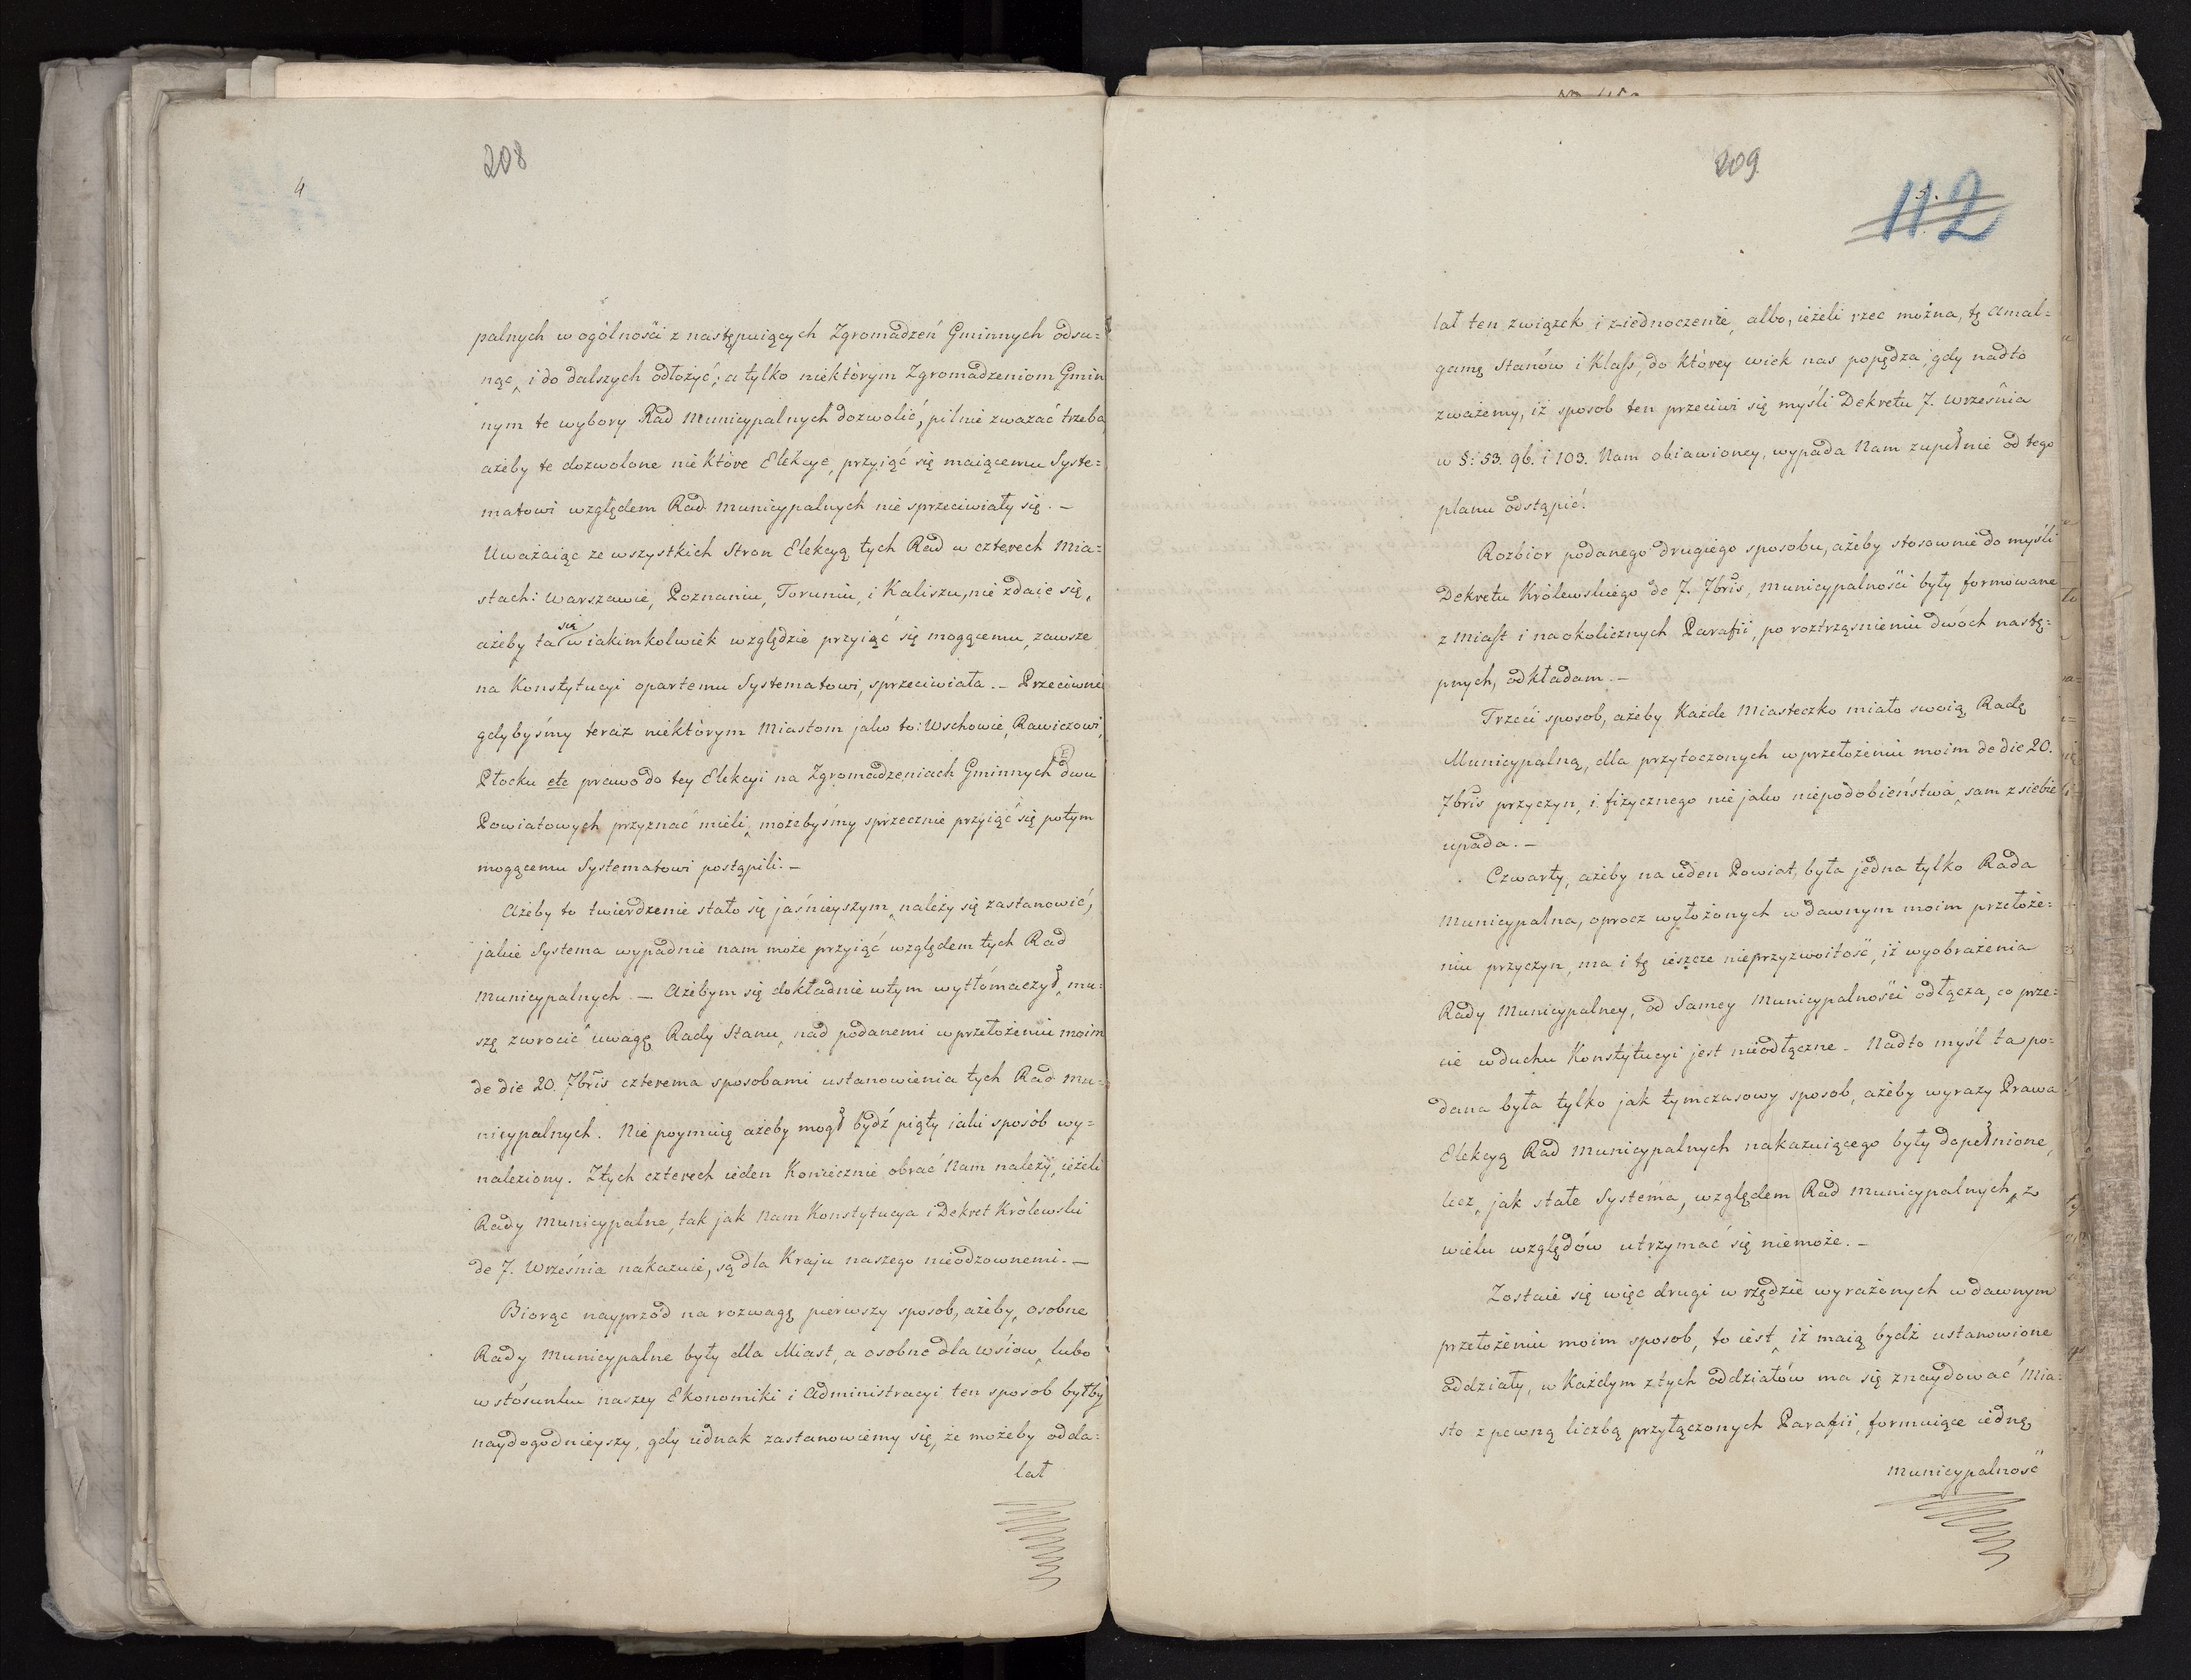 208
4
palnych w ogólności z następuiących Zgromadzeń Gminnych odsu=
nąc, i do dalszych odłożyć; a tylko niektórym Zgromadzeniom Gmin
nym te wybory Rad Municypalnych dozwolić, pilnie zważać trzeba
ażeby te dozwolone niektóre Elekcye, przyiąć się maiącemu Syste=
matowi względem Rad Municypalnych nie sprzeciwiały się. –
Uważaiąc ze wszystkich Stron Elekcyą tych Rad w czterech Mia=
stach: Warszawie, Poznaniu, Toruniu, i Kaliszu, nie zdaie się,
ażeby ta się w iakimkolwiek względzie przyiąć się mogącemu, zawsze
na Konstytucyi opartemu Systematowi, sprzeciwiała. – Przeciwnie
gdybyśmy teraz niektórym Miastom jako to: Wschowie, Rawiczowi,
Płocku etc prawo do tey Elekcyi na Zgromadzeniach Gminnych dwu
Powiatowych przyznać mieli, możebyśmy sprzecznie przyiąć się potym
mogącemu Systematowi postąpili. –
Ażeby to twierdzenie stało się jaśnieyszym, należy się zastanowić,
jakie Systema wypadnie nam może przyiąć względem tych Rad
Municypalnych. – Ażebym się dokładnie w tym wytłómaczył, mu=
szę zwrócić uwagę Rady Stanu, nad podanemi w przełożeniu moim
de die 20. 7bris czterema sposobami ustanowienia tych Rad Mu=
nicypalnych. Nie poymuię ażeby mogł bydź piąty iaki sposób wy=
naleziony. Z tych czterech ieden Koniecznie obrać Nam należy, ieżeli
Rady Municypalne, tak jak Nam Konstytucya i Dekret Królewski
de 7. Września nakazuie, są dla Kraju naszego nieodzownemi. –
Biorąc nayprzód na rozwagę pierwszy sposob, ażeby, osobne
Rady Municypalne były dla Miast, a osobne dla wsiow, lubo
w stósunku naszey Ekonomiki i Administracyi ten sposob byłby
naydogodnieyszy, gdy iednak zastanowiemy się, że możeby odda=
lał
209
112
lał ten związek i ziednoczenie, albo, ieżeli rzec można, tę Amal=
gamę Stanów i Klass, do którey wiek nas popędza; gdy nadto
zważemy, iż sposob ten przeciwi się myśli Dekretu 7. Września
w §: 53. 96. i 103. Nam obiawioney, wypada Nam zupełnie od tego
planu odstąpić.
Rozbior podanego drugiego sposobu, ażeby stosownie do myśli
Dekretu Królewskiego de 7. 7bris, Municypalności były formowane
z Miast i naokolicznych Parafii, po roztrząśnieniu dwóch nastę=
pnych, odkładam. –
Trzeci sposob, ażeby Każde Miasteczko miało swoią Radę
Municypalną, dla przytoczonych w przełożeniu moim de die 20.
7bris przyczyn, i fizycznego niejako niepodobieństwa, sam z siebie
upada. –
Czwarty, ażeby na ieden Powiat, była jedna tylko Rada
Municypalna, oprocz wyłożonych w dawnym moim przełoże=
niu przyczyn, ma i tę ieszcze nieprzyzwoitość, iż wyobrażenia
Rady Municypalney, od Samey Municypalności odłącza, co prze=
cie w duchu Konstytucyi jest nieodłączne. – Nadto myśl ta po=
dana była tylko jak tymczasowy sposob, ażeby wyrazy Prawa
Elekcyą Rad Municypalnych nakazuiącego były dopełnione,
lecz, jak stałe Systema, względem Rad Municypalnych, z
wielu względów utrzymać się niemoże. –
Zostaie się więc drugi w rzędzie wyrażonych w dawnym
przełożeniu moim sposob, to iest, iż maią bydź ustanowione
oddziały, w Każdym z tych oddziałów ma się znaydować Mia=
sto z pewną liczbą przyłączonych Parafii, formuiące iednę
Municypalność